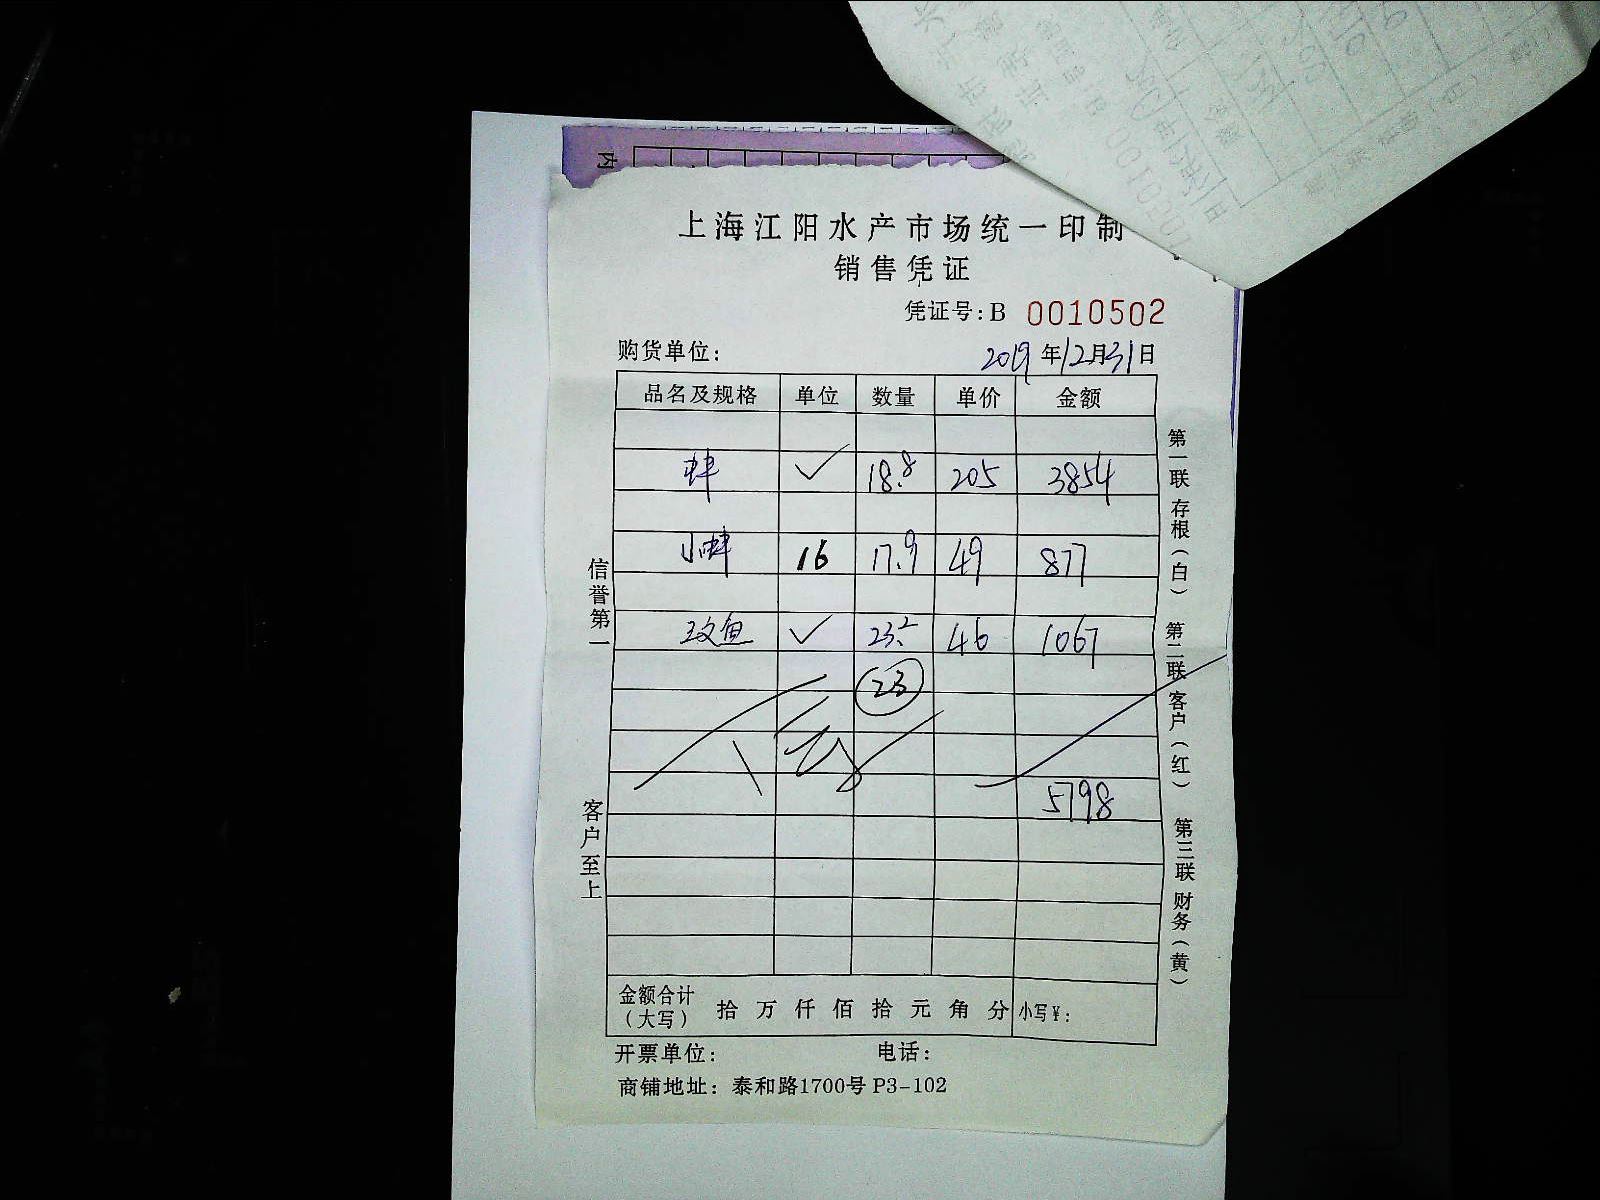 内
上海江阳水产市场统一印制
销售凭证
凭证号:B 0010502
购货单位: 2019年12月31日
品名及规格 单位 数量 单价 金额
蚌 ✓ 18.8 205 3854
小蚌 16 17.9 49 877
鱼 ✓ 23.2 46 1067
23
5798
金额合计(大写) 拾万仟佰拾元角分 小写¥:
开票单位: 电话:
商铺地址: 泰和路1700号 P3-102
信誉第一
客户至上
第一联存根(白)
第二联客户(红)
第三联财务(黄)